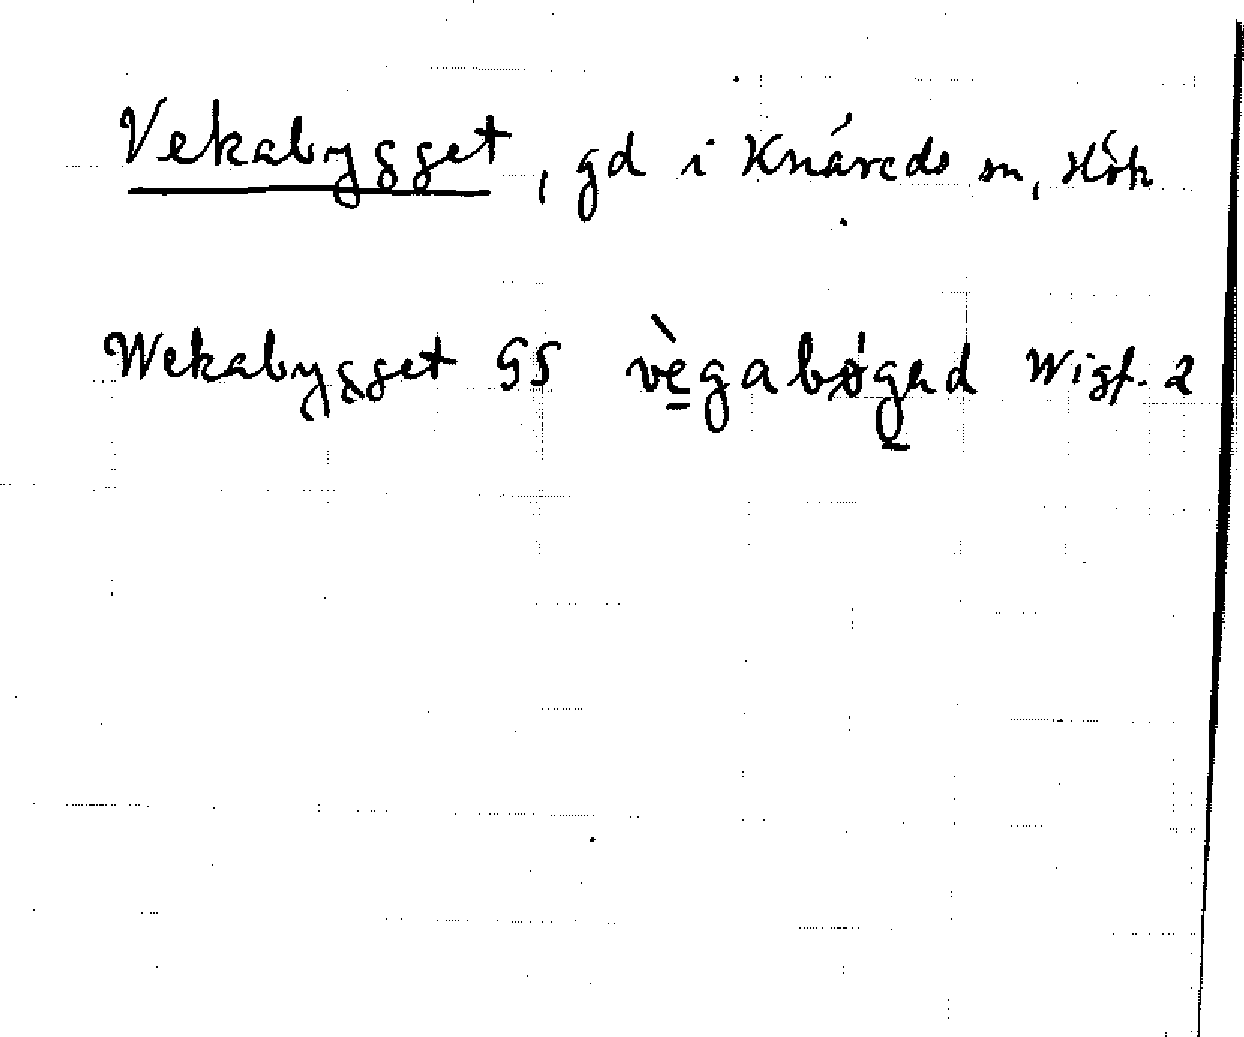 Vekabygget, gd i Knäreds sn, Hök
Wekabygget GS vègabøgad Wigf. 2